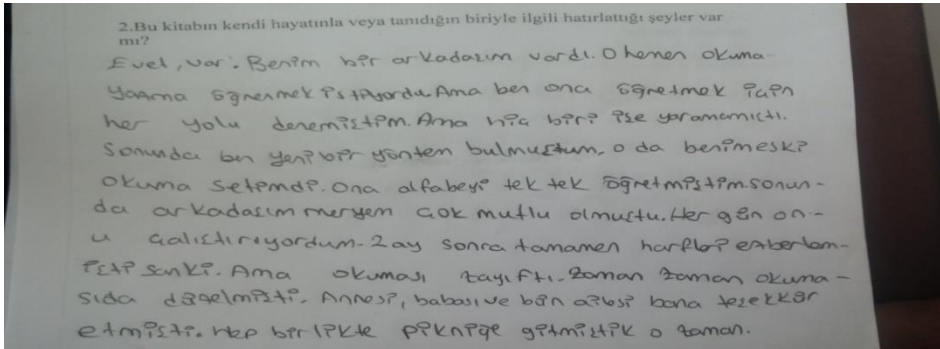 2.Bu kitabın kendi hayatınla veya tanıdığın biriyle ilgili hatırlattığı şeyler var
mı?
Evet, var. Benim bir arkadaşım vardı. O hemen okuma
yazma öğrenmek istiyordu. Ama ben ona öğretmek için
her yolu denemiştim. Ama hiç biri işe yaramamıştı.
Sonunda ben yeni bir yöntem bulmuştum. o da benim eski
okuma setimdi. Ona alfabeyi tek tek öğretmiştim. sonun-
da arkadaşım meryem çok mutlu olmuştu. Her gün on-
u çalıştırıyordum. 2 ay sonra tamamen harfleri ezberlem-
işti sanki. Ama okuması zayıftı. Zaman zaman okuma-
sıda düzelmişti. Annesi, babası ve bün ailesi bana teşekkür
etmişti. Hep birlikte pikniğe gitmiştik o zaman.